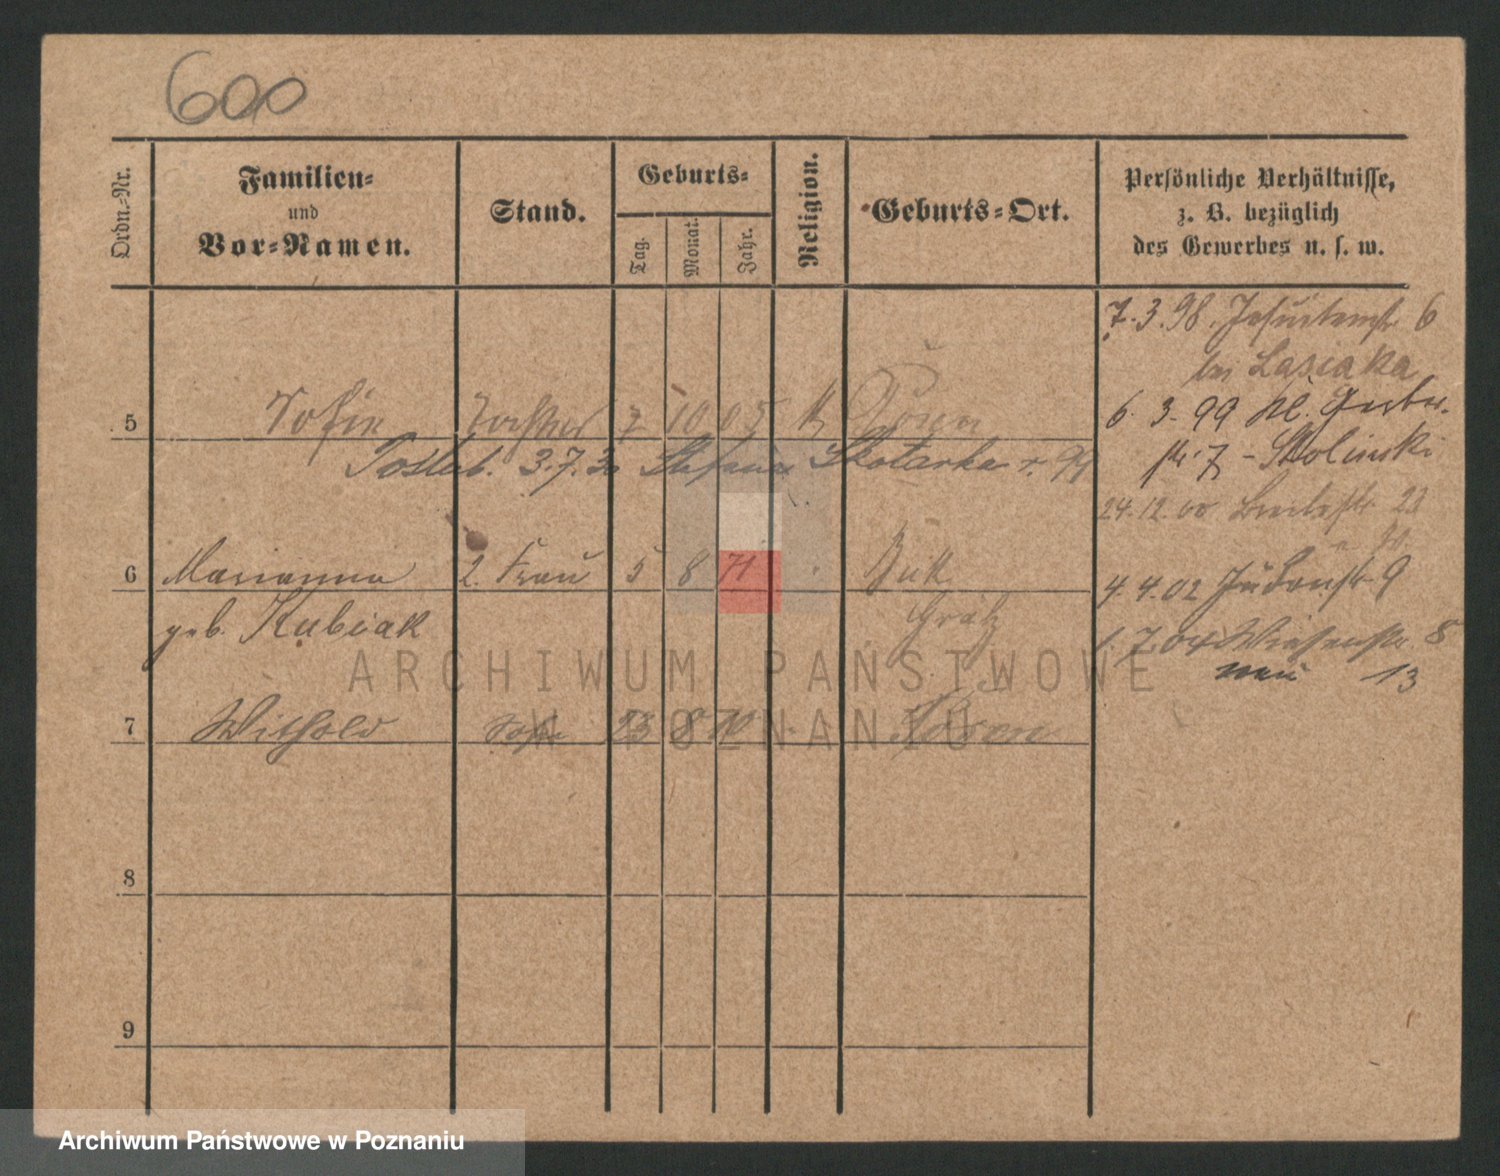 600
Ordn.-Nr.
Familien-
und
Vor-Namen.
Stand.
Geburts-
Tag.
Monat.
Jahr.
Religion.
Geburts-Ort.
Persönliche Verhältnisse,
z. B. bezüglich
des Gewerbes u. s. w.
7.3.98. Jesuitenstr. 6
bei Lasiaka
6. 3. 99 Kl. Gerber-
str. 7 - Skolinski
24.12.00 Breitestr. 23
4.4.02 Judenstr. 9
1.7.04 Wiesenstr. 8
neu 13
5 Sofie Tochter 7 10 05 k Posen
3.7.30 Stefania Skotarka
6 Marianna 2. Frau 5 8 71 Buk
geb. Kubiak Grätz
7 Withold Sohn 23 8 10 Posen
8
9
ARCHIWUM PAŃSTWOWE
W POZNANIU
Archiwum Państwowe w Poznaniu